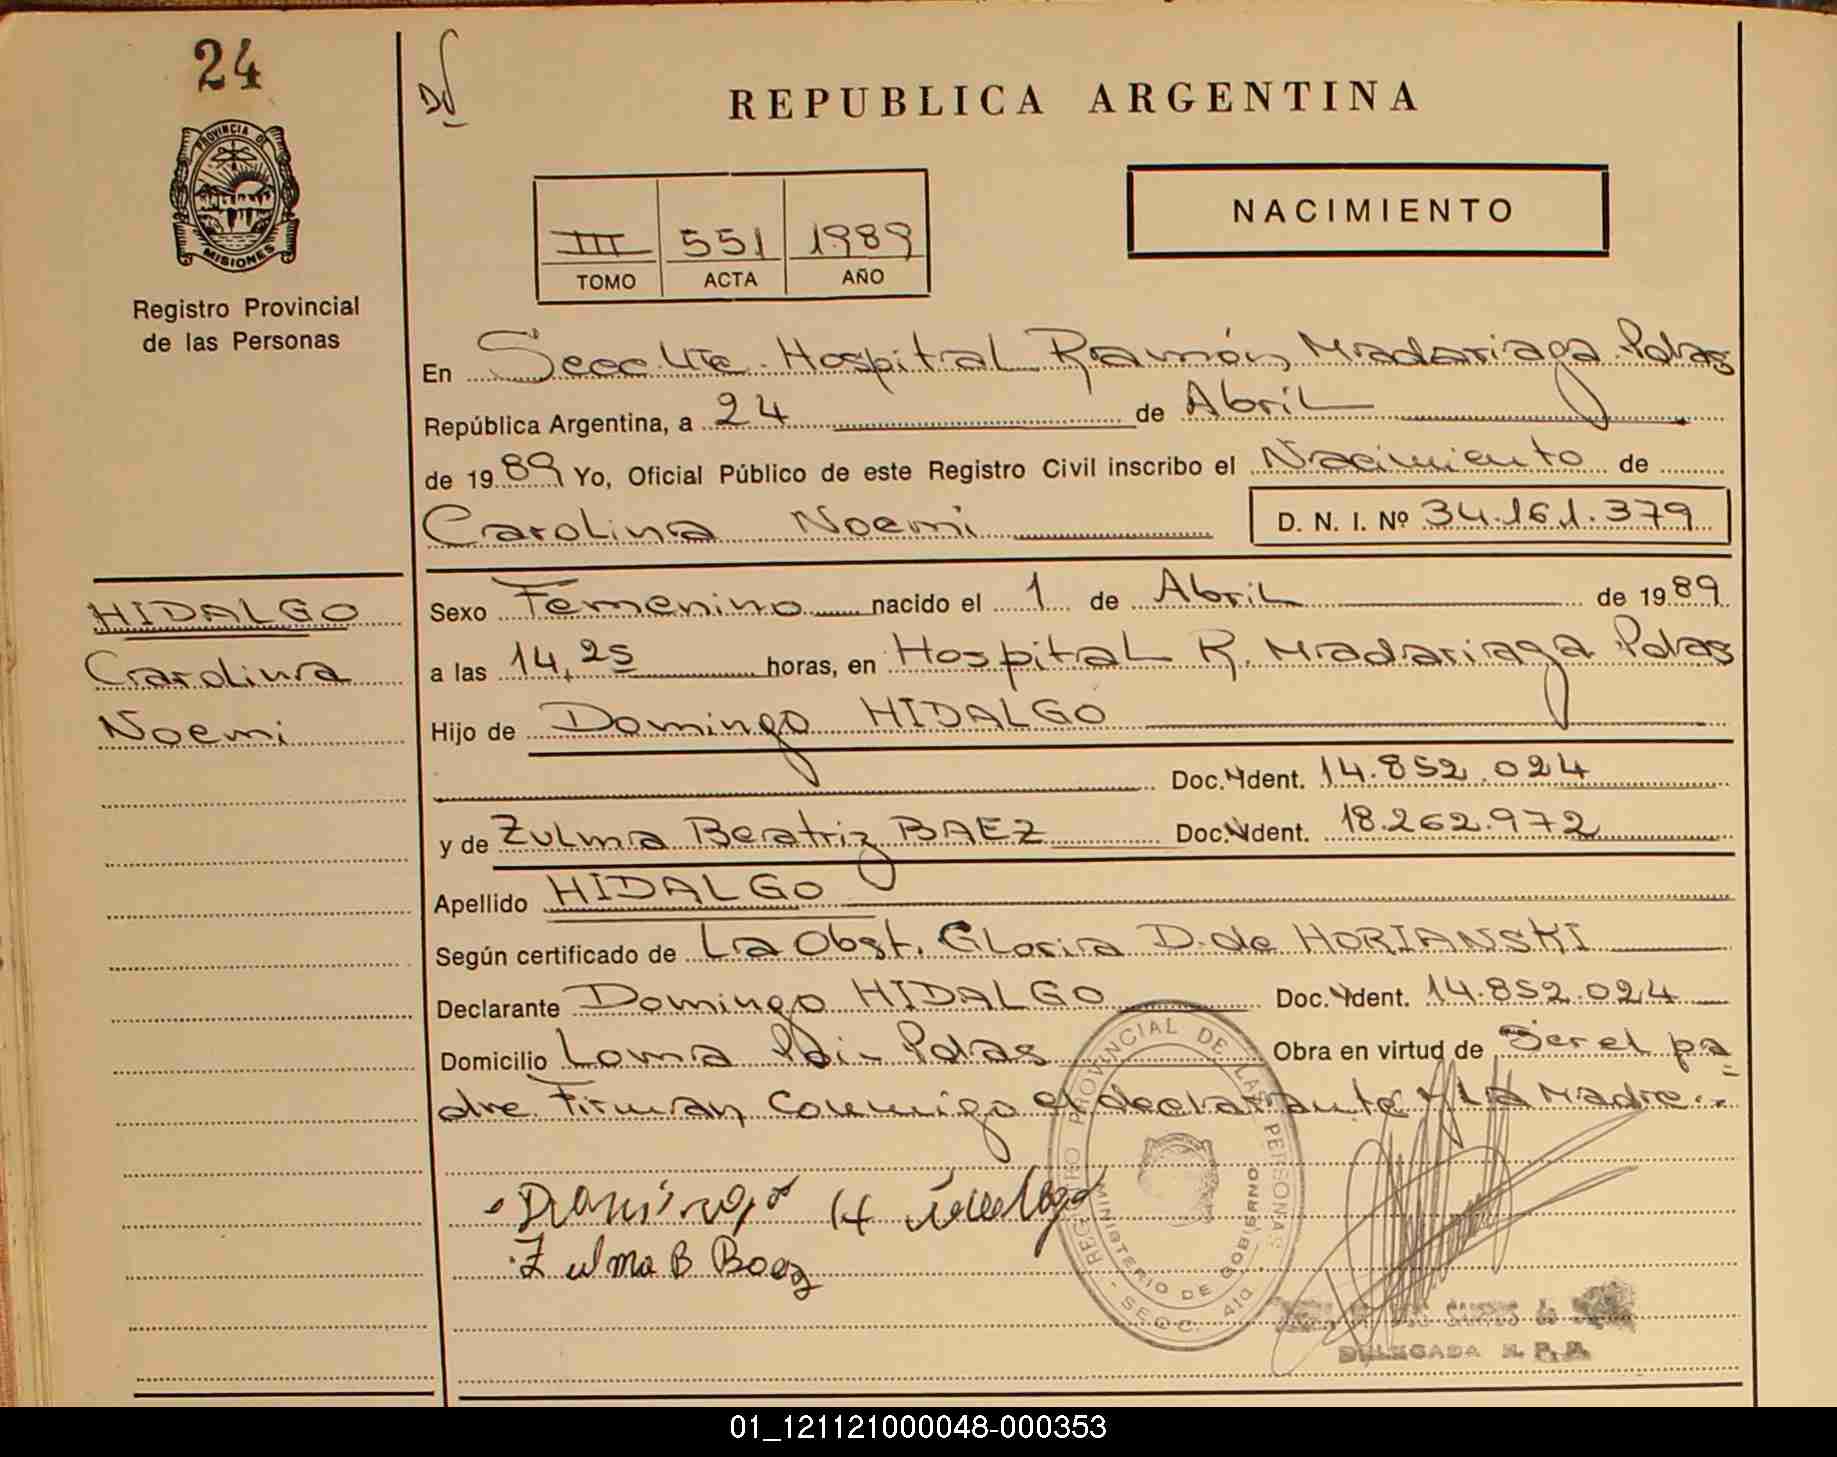 24
PROVINCIA DE
MISIONES
Registro Provincial
de las Personas
HIDALGO
Carolina
Noemi
REPUBLICA ARGENTINA
NACIMIENTO
III 551 1989
TOMO ACTA AÑO
En Secc. 4ta. Hospital Ramón Madariaga Pdas
República Argentina, a 24 de Abril
de 1989 Yo, Oficial Público de este Registro Civil inscribo el Nacimiento de
Carolina Noemi D. N. I. Nº 34.161.379
Sexo Femenino nacido el 1 de Abril de 1989
a las 14,25 horas, en Hospital R. Madariaga Pdas
Hijo de Domingo HIDALGO
Doc. Ident. 14.852.024
y de Zulma Beatriz BAEZ Doc. Ident. 18.262.972
Apellido HIDALGO
Según certificado de La Obst. Gloria D. de HORIANSKI
Declarante Domingo HIDALGO Doc. Ident. 14.852.024
Domicilio Loma Pdi - Pdas Obra en virtud de Ser el pa
dre. Firman conmigo el declarante y la Madre.-
Domingo H
Zulma B Baez
REGISTRO PROVINCIAL DE LAS PERSONAS
MINISTERIO DE GOBIERNO
- SECC. 4ta
DOS SANTOS de
DELEGADA R. P. P.
01_121121000048-000353